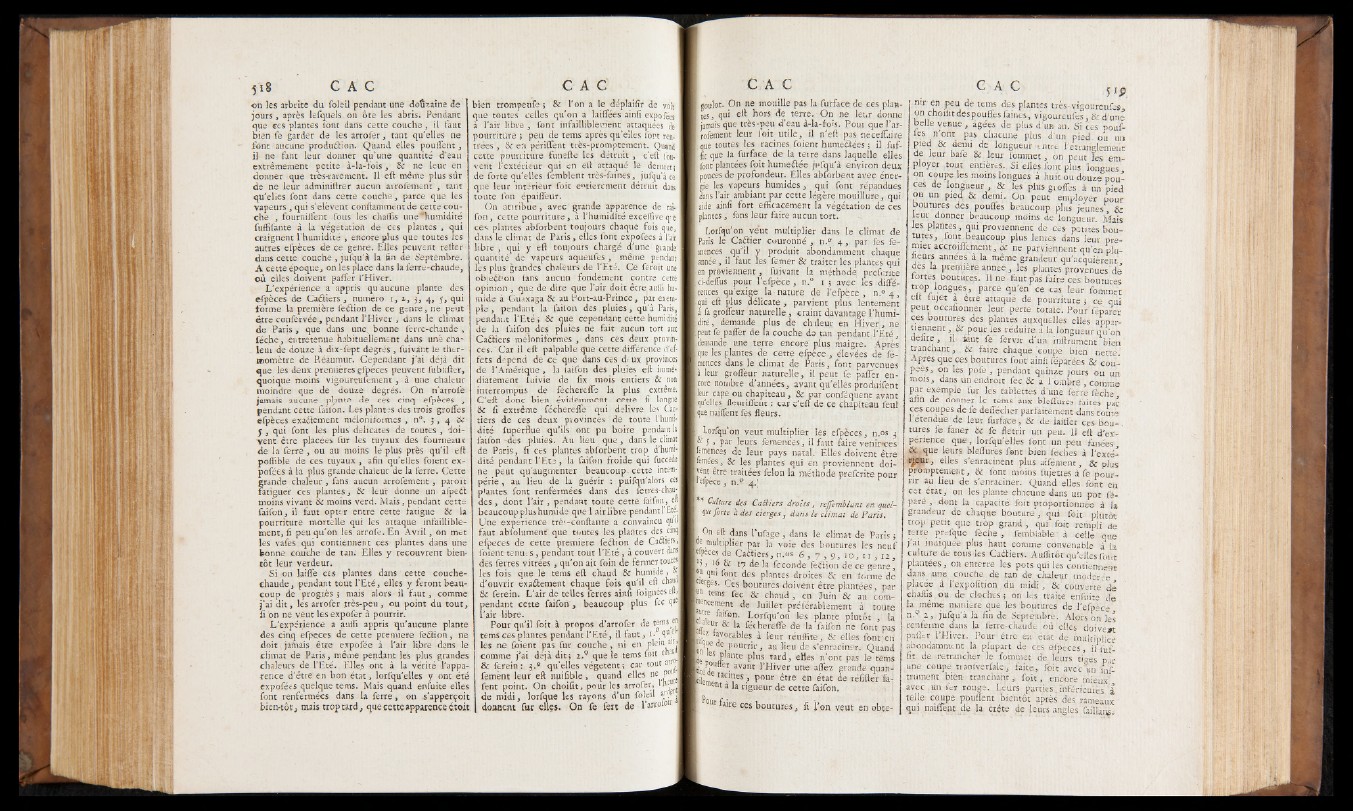 518 C A C C A C
on les arbrite du soleil pendant une douzaine de
jours, après lesquels on ôte les abris. Pendant
que ces plantes sont dans cette couche, il faut
bien se garder de les arroser, tant qu'elles ne
font aucune production. Quand elles poussent,
il ne faut leur donner qu'une quantité d'eau
extrêmement petite à-la-fois, & ne leur en
donner que très-rarement. Il est même plus sûr
de ne leur administrer aucun arrosement, tant
qu'elles sont dans cette couche, parce que les
vapeurs, qui s'élevent constamment de cette couche
, fournissent sous les chassis une humidité
suffisante à la végétation de ces plantes, qui
craignent l'humidité, encore plus que toutes les
autres espèces de ce genre. Elles peuvent rester
dans cette couche, jusqu'à la fin de Septembre.
A cette epoque, on les place dans la serre-chaude,
où elles doivent passer l'Hiver.
L'expérience a appris qu'aucune plante des
espèces de Cactiers, numéro 1, 2, 3, 4, 5, qui
forme la première section de ce genre, ne peut
être conservée, pendant l'Hiver, dans le climat
de Paris, que dans une bonne serre-chaude,
sèche, entretenue habituellement dans une chaleur
de douze à dix-sept degrés, suivant le thermomètre
de Réaumur. Cependant j'ai déjà dit
que les deux premières espèces peuvent subsister,
quoique moins vigoureusement, à une chaleur
moindre que de douze degrés. On n'arrose
jamais aucune plante de ces cinq espèces,
pendant cette saison. Les plantes des trois grosses
espèces exactement méloniformes, n°. 3, 4 &
5, qui sont les plus délicates de toutes, doivent
être placées sur les tuyaux des fourneaux
de la serre, ou au moins le plus près qu'il est
possible de ces tuyaux, afin qu'elles soient exposées
à la plus grande chaleur de la serre. Cette
grande chaleur, sans aucun arrosement, paroît
fatiguer ces plantes, & leur donne un aspect
moins vivant & moins verd. Mais, pendant cette
saison, il faut opter entre cette fatigue & la
pourriture mortelle qui les attaque infailliblement,
si peu qu'on les arrose. En Avril, on met
les vases qui contiennent ces plantes dans une
bonne couche de tan. Elles y recouvrent bientôt
leur verdeur.
Si on laisse ces plantes dans cette couche-
chaude, pendant tout l'Eté, elles y feront beaucoup
de progrès; mais alors il faut, comme
j'ai dit, les arroser très-peu, ou point du tout,
si on ne veut les exposer à pourrir.
L'expérience a aussi appris qu'aucune plante
des cinq especes de cette premiere section, ne
doit jamais être exposée à l'air libre dans le
climat de Paris, même pendant les plus grandes
chaleurs de l'Eté. Elles ont à la vérité l'apparence
d'être en bon état, lorsqu'elles y ont été
exposées quelque tems. Mais quand ensuite elles
sont renfermées dans la serre, on s'apperçoit
bien-tôt, mais trop tard, que cette apparence étoit
bien trompeuse; & l'on a le déplaisir de voir
que toutes celles qu'on a laissées ainsi exposées
à l'air libre, sont infailliblement attaquées de
pourriture; peu de tems après qu'elles sont rentrées,
& en périssent très-promptement. Quand
cette pourriture funeste les détruit, c'est souvent
l'extérieur qui en est attaqué le dernier;
de sorte qu'elles semblent très-saines, jusqu'à ce
que leur intérieur soit entierement détruit dans
toute son épaisseur.
On attribue, avec grande apparence de raison,
cette pourriture, à l'humidité excessive que
ces plantes absorbent toujours chaque fois que,
dans le climat de Paris, elles sont exposées à l'air
libre, qui y est toujours chargé d'une grande
quantité de vapeurs aqueuses, même pendant
les plus grandes chaleurs de l'Eté. Ce seroit une
objection sans aucun fondement contre cette
opinion, que de dire que l'air doit être aussi humide
à Guaxaga & au Port-au-Prince, par exemple
, pendant la saison des pluies, qu'à Paris,
pendant l'Eté; & que cependant cette humidité
de la saison des pluies ne fait aucun tort aux
Cactiers méloniformes, dans ces deux provinces.
Car il est palpable que cette différence d'effets
dépend de ce que dans ces deux provinces
de l'Amérique, la saison des pluies est immédiatement
suivie de six mois entiers & non
interrompus de sècheresse la plus extrême.
C'est donc bien évidemment cette si longue
& si extrême sécheresse qui délivre les Cactiers
de ces deux provinces de toute l'humidité
superflue qu'ils ont pu boire pendant la
saison des pluies. Au lieu que, dans le climat
de Paris, si ces plantes absorbent trop d'humidité
pendant l'Eté, la saison froide qui succède
ne peut qu'augmenter beaucoup cette intempérie,
au lieu de la guérir: puisqu'alors ces
plantes sont renfermées dans des serres-chaudes,
dont l'air, pendant toute cette saison, est
beaucoup plus humide que l'air libre pendant l'Eté.
Une expérience très-constante a convaincu qu'il
faut absolument que toutes les plantes des cinq
especes de cette premiere section de Cactiers,
soient tenues, pendant tout l'Eté, à couvert dans
des serres vitrees, qu'on ait soin de fermer toutes
les fois que le tems est chaud & humide, &
d'ouvrir exactement chaque fois qu'il est chaud
& serein. L'air de telles serres ainsi soignées est,
pendant cette saison, beaucoup plus sec que
l'air libre.
Pour qu'il soit à propos d'arroser de tems en
tems ces plantes pendant l'Eté, il faut, 1.° qu'elles
ne soient pas sur couche, ni en plein air,
comme j'ai déjà dit; 2.° que le tems soit chaud
& serein: 3.° qu'elles végetent; car tout arrosement
leur est nuisible, quand elles ne poussent
point. On choisit, pour les arroser, l'heure
de midi, lorsque les rayons d'un soleil ardent
donnent sur elles. On se sert de l'arrosoir à
C A C C A C 519
goulot. On ne mouille pas la surface de ces plantes,
qui est hors de terre. On ne leur donne
jamais que très-peu d'eau à-la-fois. Pour que l'arrosement
leur soit utile, il n'est pas necessaire
que toutes les racines soient humectées; il suffit
que la surface de la terre dans laquelle elles
sont plantées soit humectée jusqu'à environ deux
pouces de profondeur. Elles absorbent avec énergie
les vapeurs humides, qui sont répandues
dans l'air ambiant par cette légère mouillure, qui
aide ainsi fort efficacement la végétation de ces
plantes, sans leur faire aucun tort.
Lorsqu'on veut multiplier dans le climat de
Paris le Cactier couronné, n.° 4, par ses semences
qu'il y produit abondamment chaque
année, il faut les semer & traiter les plantes qui
en proviennent, suivant la méthode prescrite
ci-dessus pour l'espèce, n.° 1; avec les différences
qu'exige la nature de l'espèce, n.° 4,
qui est plus délicate, parvient plus lentement
à sa grosseur naturelle, craint davantage l'humidité,
demande plus de chaleur en Hiver, ne
peut se passer de la couche de tan pendant l'Eté,
demande une terre encore plus maigre. Après
que les plantes de cette espèce, élevées de semences
dans le climat de Paris, sont parvenues
à leur grosseur naturelle, il peut se passer encore
nombre d'années, avant qu'elles produisent
leur cape ou chapiteau, & par conséquent avant
qu'elles fleurissent: car c'est de ce chapiteau seul
que naissent ses fleurs.
Lorsqu'on veut multiplier les espèces, n.os 3
& 5, par leurs semences, il faut faire venir ces
semences de leur pays natal. Elles doivent être
semées, & les plantes qui en proviennent doivent
être traitées selon la méthode prescrite pour
l'espèce, n.° 4.
** Culture des Cactiers droits, ressemblant en quelque
sorte à des cierges, dans le climat de Paris.
On est dans l'usage, dans le climat de Paris;
de multiplier par la voie des boutures les neuf
espèces de Cactiers, n.os 6, 7, 9, 10, 11, 12,
13, 16 & 17 de la seconde section de ce genre,
ou qui sont des plantes droites & en forme de
cierges. Ces boutures doivent être plantées, par
un tems sec & chaud, en Juin & au commencement
de Juillet préférablement à toute
autre saison. Lorsqu'on les plante plutôt, la
chaleur & la sécheresse de la saison ne sont pas
assez favorables à leur reussite, & elles sont en
risque de pourrir, au lieu de s'enraciner. Quand
on les plante plus tard, elles n'ont pas le tems
de pousser avant l'Hiver une assez grande quantité
de racines, pour être en état de résister facilement
à la rigueur de cette saison.
Pour faire ces boutures, si l'on veut en obtenir
en peu de tems des plantes très-vigoureuses,
on choisit des pousses saines, vigoureuses, & d'une
belle venue, âgées de plus d'un an. Si ces pousses
n'ont pas chacune plus d'un pied ou un
pied & demi de longueur entre l'étranglement
de leur base & leur sommet, on peut les employer
tout entières. Si elles sont plus longues,
on coupe les moins longues à huit ou douze pouces
de longueur, & les plus grosses à un pied
ou un pied & demi. On peut employer pour
boutures des pousses beaucoup plus jeunes, &
leur donner beaucoup moins de longueur. Mais
les plantes, qui proviennent de ces petites boutures,
sont beaucoup plus lentes dans leur premier
accroissement, & ne parviennent qu'en plusieurs
années à la même grandeur qu'acquièrent,
dès la première année, les plantes provenues de
fortes boutures. Il ne faut pas faire ces boutures
trop longues, parce qu'en ce cas leur sommet
est sujet à être attaqué de pourriture; ce qui
peut occasionner leur perte totale. Pour séparer
ces boutures des plantes auxquelles elles appartiennent,
& pour les reduire à la longueur qu'on
desire, il faut se servir d'un instrument bien
tranchant, & faire chaque coupe bien nette.
Après que ces boutures sont ainsi séparées & coupées,
on les pose, pendant quinze jours ou un
mois, dans un endroit sec & à l'ombre, comme
par exemple sur les tablettes d'une serre sèche,
afin de donner le tems aux blessures faites par
ces coupes de se dessécher parfaitement dans toute
l'étendue de leur surface, & de laisser ces boutures
se faner & se fletrir un peu. Il est d'expérience
que, lorsqu'elles sont un peu fanées,
& que leurs blessures sont bien sèches à l'extérieur,
elles s'enracinent plus aisément, & plus
promptement, & sont moins sujettes à se pourrir
au lieu de s'enraciner. Quand elles sont en
cet état, on les plante chacune dans un pot séparé,
dont la capacité soit proportionnée à la
grandeur de chaque bouture, qui soit plutôt
trop petit que trop grand, qui soit rempli de
terre presque sèche, semblable à celle que
j'ai marquée plus haut comme convenable à la
culture de tous les Cactiers. Aussitôt qu'elles sont
plantées, on enterre les pots qui les contiennent
dans une couche de tan de chaleur modérée,
placée à l'exposition du midi, & couverte de
chassis ou de cloches; on les traite ensuite de
la même manière que les boutures de l'espece
n.° 2, jusqu'à la fin de Septembre. Alors on les
renferme dans la serre-chaude où elles doivent
passer l'Hiver. Pour être en état de multiplier
abondamment la plupart de ces especes, il suffit
de retrancher le sommet de leurs tiges par
une coupe transversale, faite, soit avec un instrument
bien tranchant, soit, encore mieux,
avec un fer rouge. Leurs parties inférieures à
telle coupe poussent bientôt après des rameaux
qui naissent de la crête de leurs angles saillans.